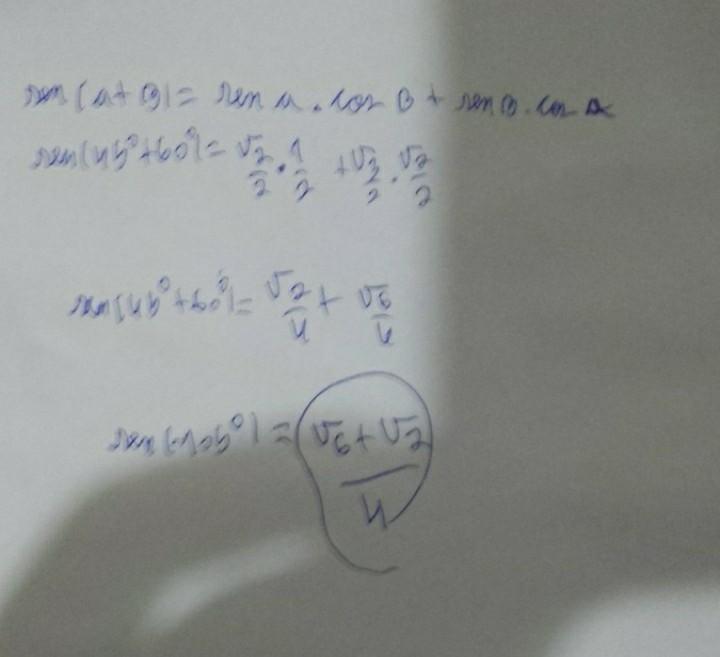 sen(a+B) = sen a . cos B + sen B . cos a
sen(45°+60°) = √2/2 . 1/2 + √3/2 . √2/2
sen(45°+60°) = √2/4 + √6/4
sen(105°) = √6+√2/4